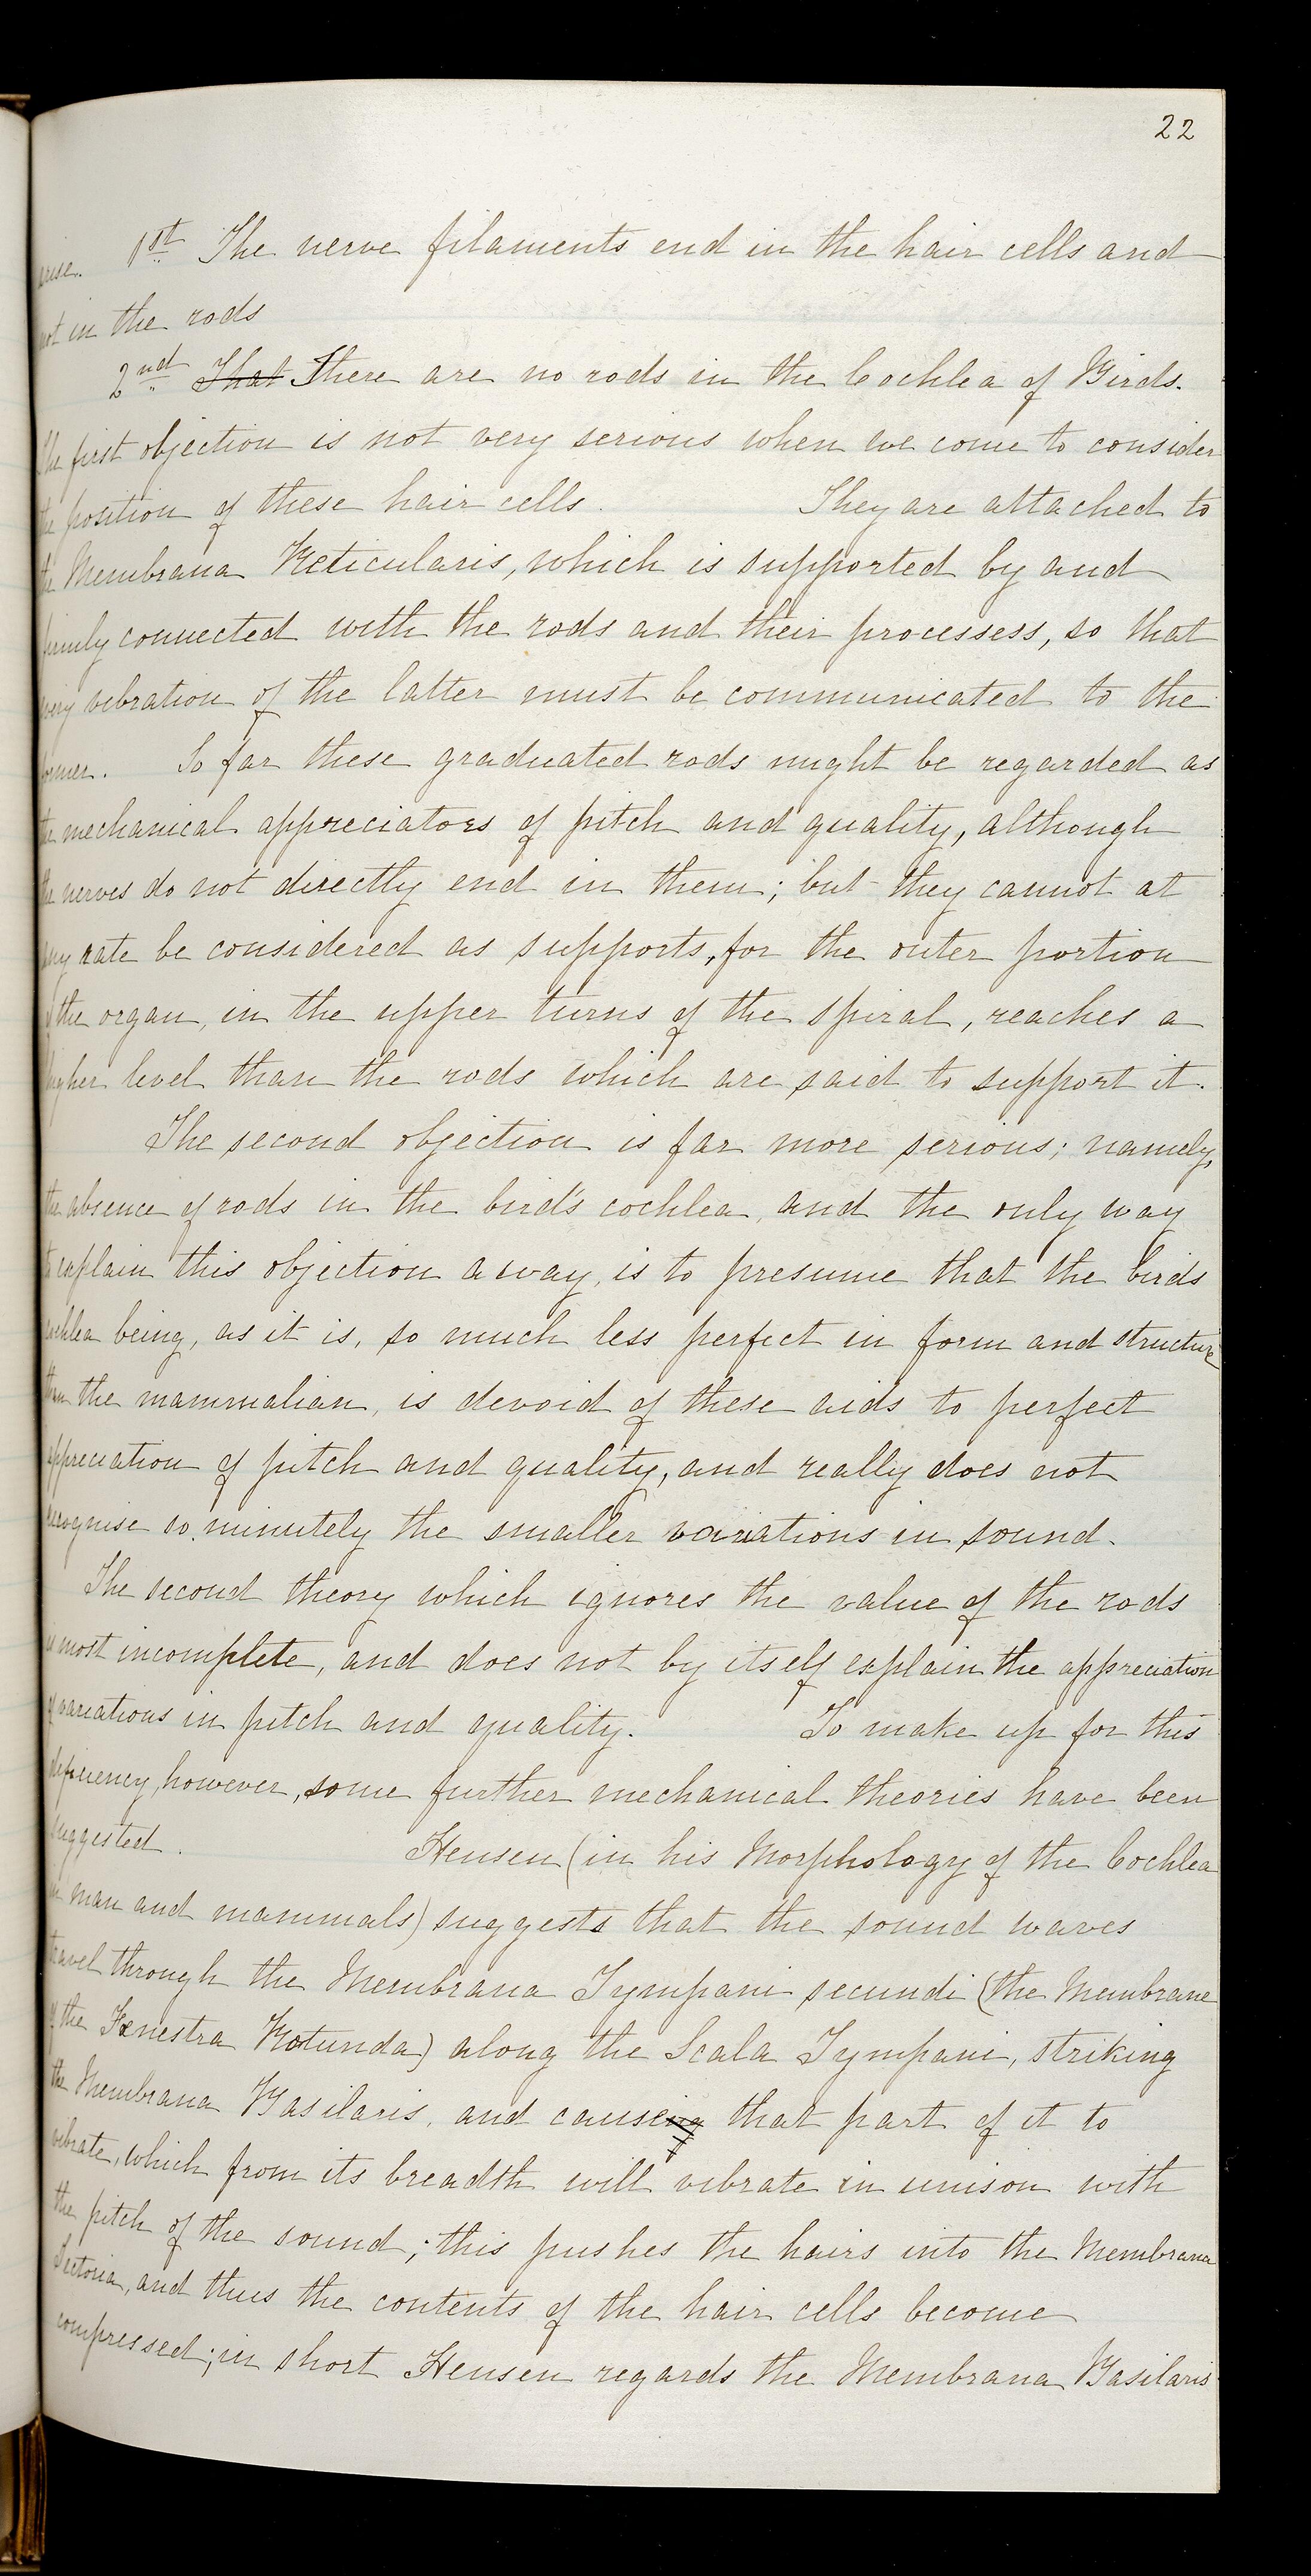 22
arise. 1st The nerve filaments end in the hair cells and
not in the rods
2nd That There are no rods in the Cochlea of Birds.
The first objection is not very serious when we come to consider
the position of these hair cells. They are attached to
the Membrana Reticularis, which is supported by and
firmly connected with the rods and their processess, so that
every vibration of the latter must be communicated to the
former. So far these graduated rods might be regarded as
the mechanical appreciators of pitch and quality, although
the nerves do not directly end in them; but they cannot at
any rate be considered as supports, for the outer portion
of the organ, in the upper turns of the spiral, reaches a
higher level than the rods which are said to support it.
The second objection is far more serious; namely,
the absence of rods in the bird's cochlea, and the only way
to explain this objection away, is to presume that the birds
cochlea being, as it is, so much less perfect in form and structure
than the mammalian, is devoid of these aids to perfect
appreciation of pitch and quality, and really does not
recognise so minutely the smaller variations in sound.
The second theory which ignores the value of the rods
is most incomplete, and does not by itself explain the appreciation
of variations in pitch and quality. To make up for this
deficiency, however, some further mechanical theories have been
suggested. Hensen (in his Morphology of the Cochlea
in man and mammals) suggests that the sound waves
travel through the Membrana Tympani secundi (the Membrane
of the Fenestra Rotunda) along the Scala Tympani, striking
the Membrana Basilaris, and causeing that part of it to
vibrate, which from its breadth will vibrate in unison with
the pitch of the sound; this pushes the hairs into the Membrana
Tectoria, and thus the contents of the hair cells become
compressed; in short Hensen regards the Membrana Basilaris